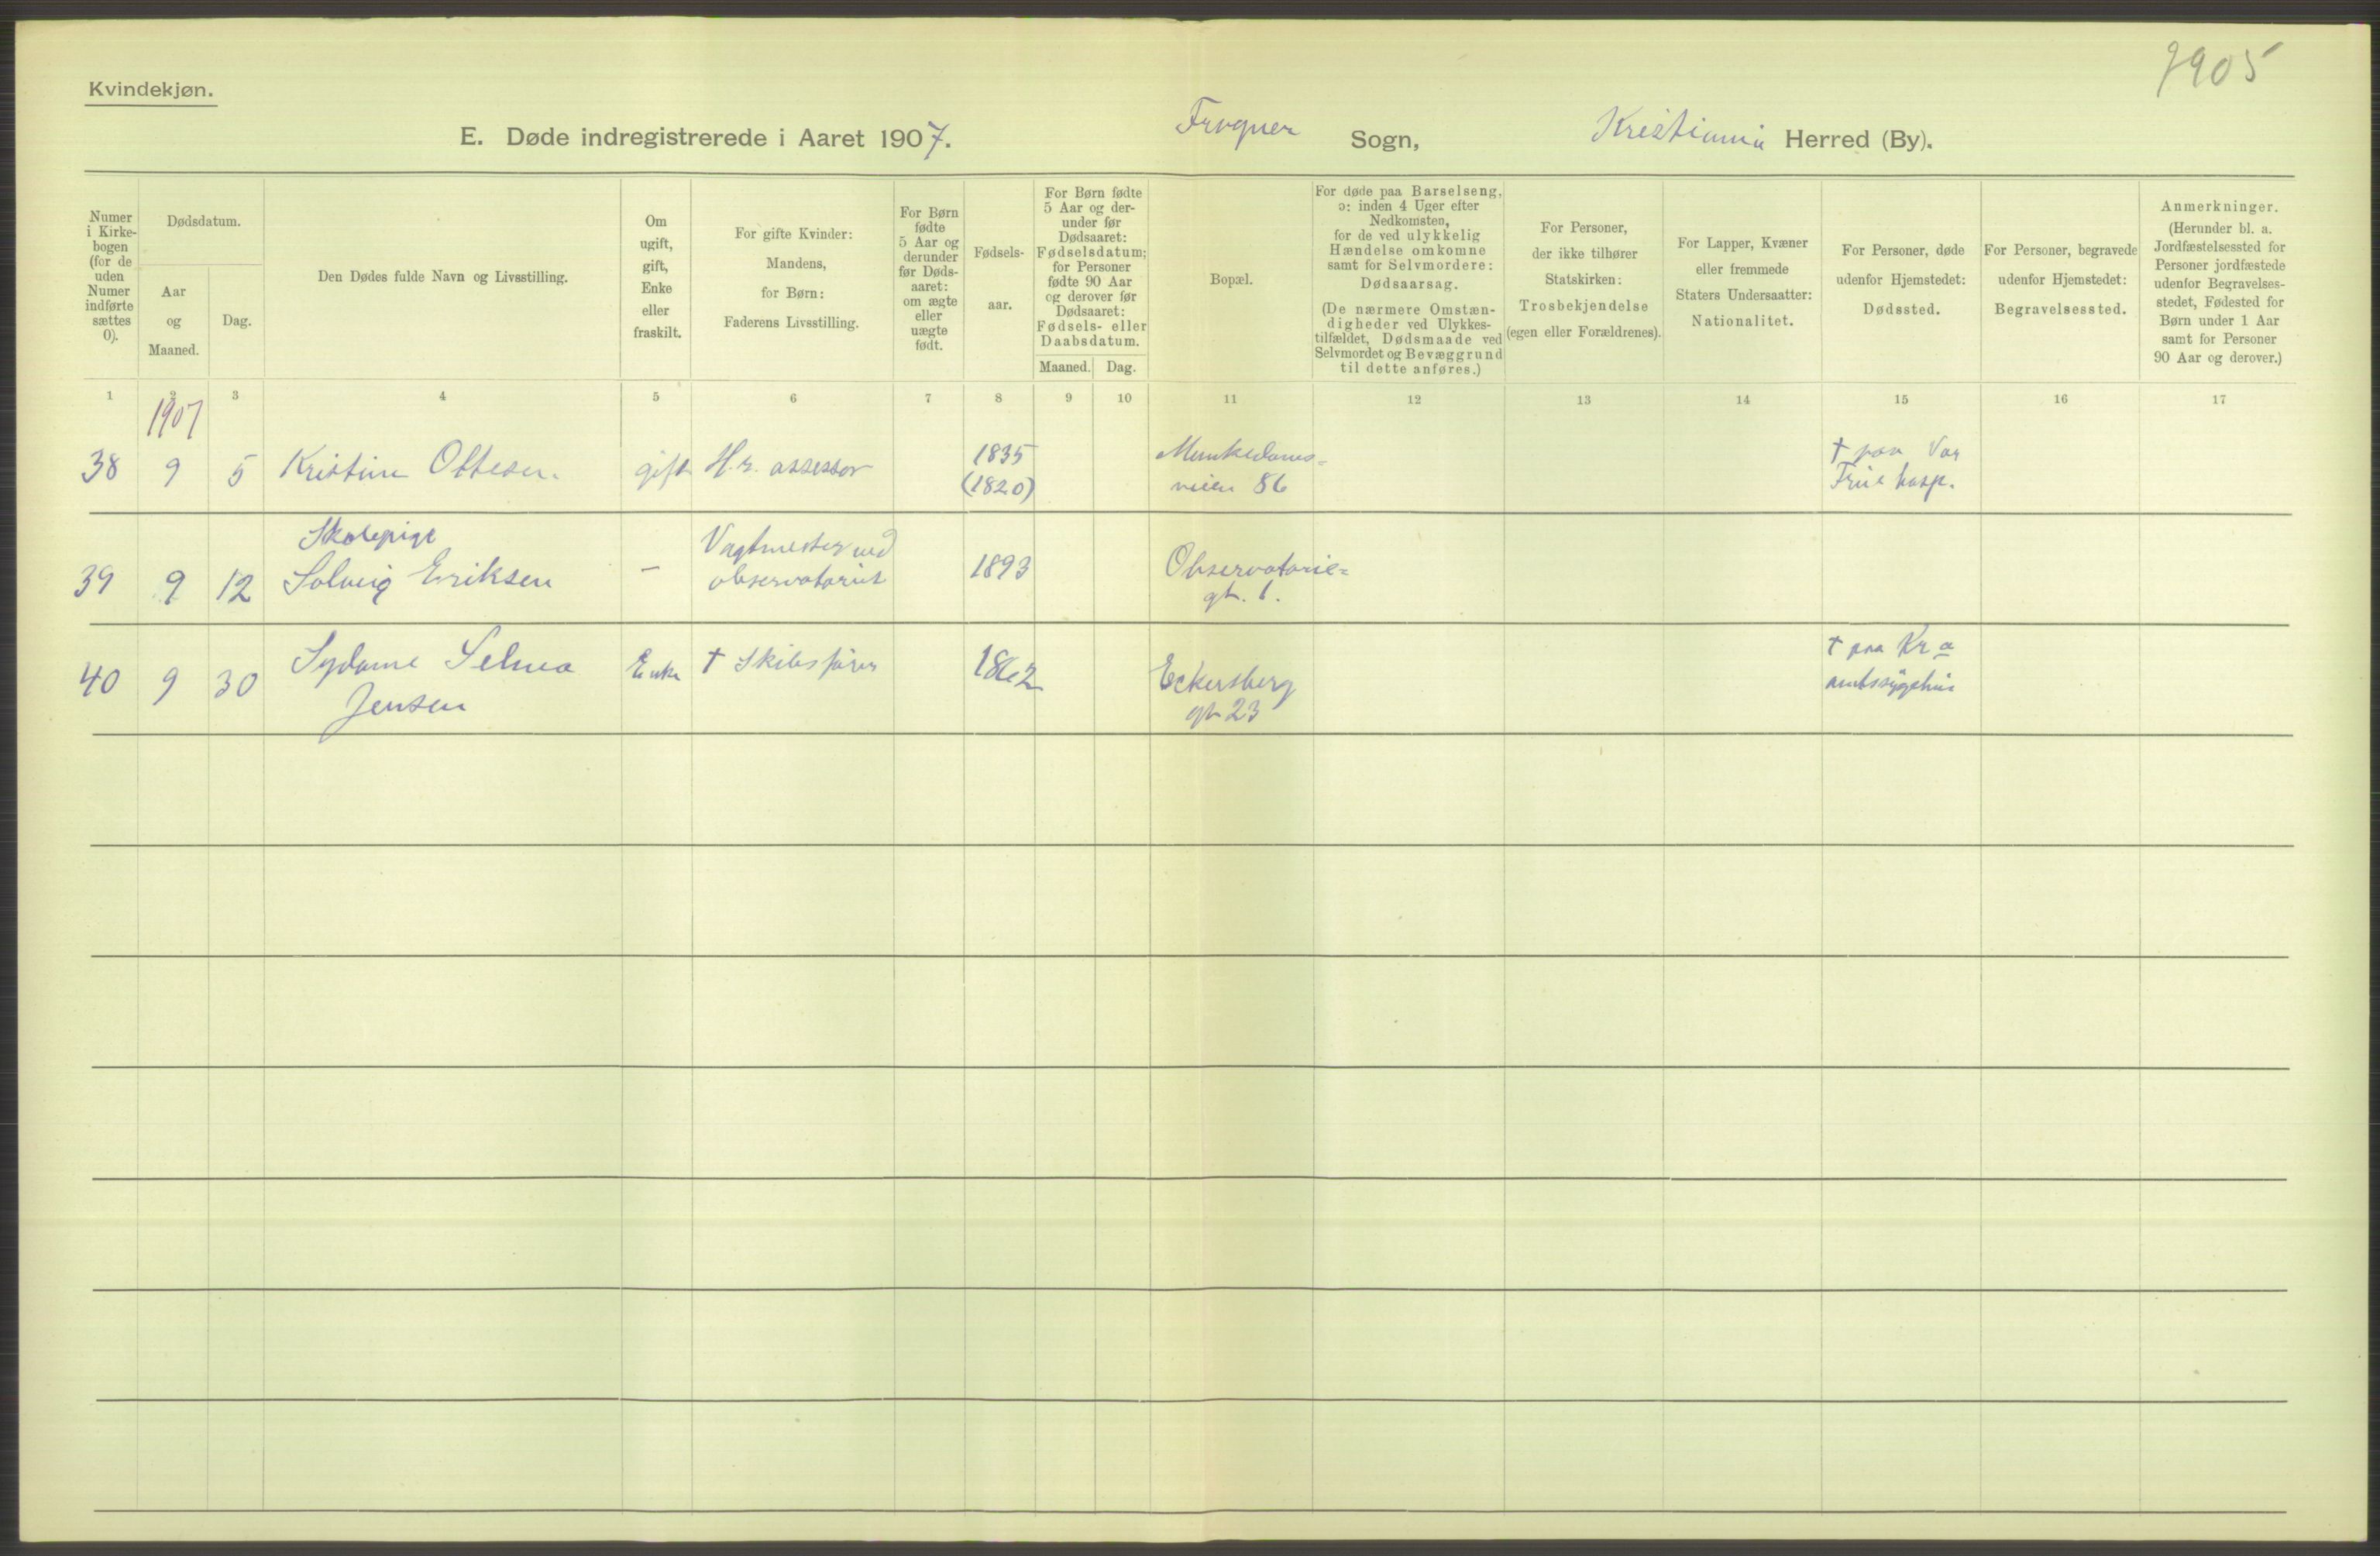 7905
Kvindekjøn.
E. Døde indregistrerede i Aaret 1907. Frogner Sogn, Kristiania Herred (By).
Numer
i Kirke-
bogen
(for de
uden
Numer
indførte
sættes
0).
Dødsdatum.
Aar
og
Maaned.
Dag.
Den Dødes fulde Navn og Livsstilling.
Om
ugift,
gift,
Enke
eller
fraskilt.
For gifte Kvinder:
Mandens,
for Børn:
Faderens Livsstilling.
For Børn
fødte
5 Aar og
derunder
før Døds-
aaret:
om ægte
eller
uægte
født.
Fødsels-
aar.
For Børn fødte
5 Aar og der-
under før
Dødsaaret:
Fødselsdatum;
for Personer
fødte 90 Aar
og derover før
Dødsaaret:
Fødsels- eller
Daabsdatum.
Maaned. Dag.
Bopæl.
For døde paa Barselseng,
ɔ: inden 4 Uger efter
Nedkomsten,
for de ved ulykkelig
Hændelse omkomne
samt for Selvmordere:
Dødsaarsag.
(De nærmere Omstæn-
digheder ved Ulykkes-
tilfældet, Dødsmaade ved
Selvmordet og Bevæggrund
til dette anføres.)
For Personer,
der ikke tilhører
Statskirken:
Trosbekjendelse
(egen eller Forældrenes).
For Lapper, Kvæner
eller fremmede
Staters Undersaatter:
Nationalitet.
For Personer, døde
udenfor Hjemstedet:
Dødssted.
For Personer, begravede
udenfor Hjemstedet:
Begravelsessted.
Anmerkninger.
(Herunder bl. a.
Jordfæstelsessted for
Personer jordfæstede
udenfor Begravelses-
stedet, Fødested for
Børn under 1 Aar
samt for Personer
90 Aar og derover.)
1 2 3 4 5 6 7 8 9 10 11 12 13 14 15 16 17
1907
38 9 5 Kristine Ottesen. gift H. r. assessor
1835
(1820)
Munkedams=
veien 86
† paa Vor
Frue hosp.
39 9 12
Skolepige
Solveig Eriksen
—
Vagtmester ved
observatoriet
1893
Observatorie=
gt. 1.
40 9 30
Sydame Selma
Jensen
Enke † Skibsfører 1862
Eckersberg
gt 23
† paa Kra
amtssygehus